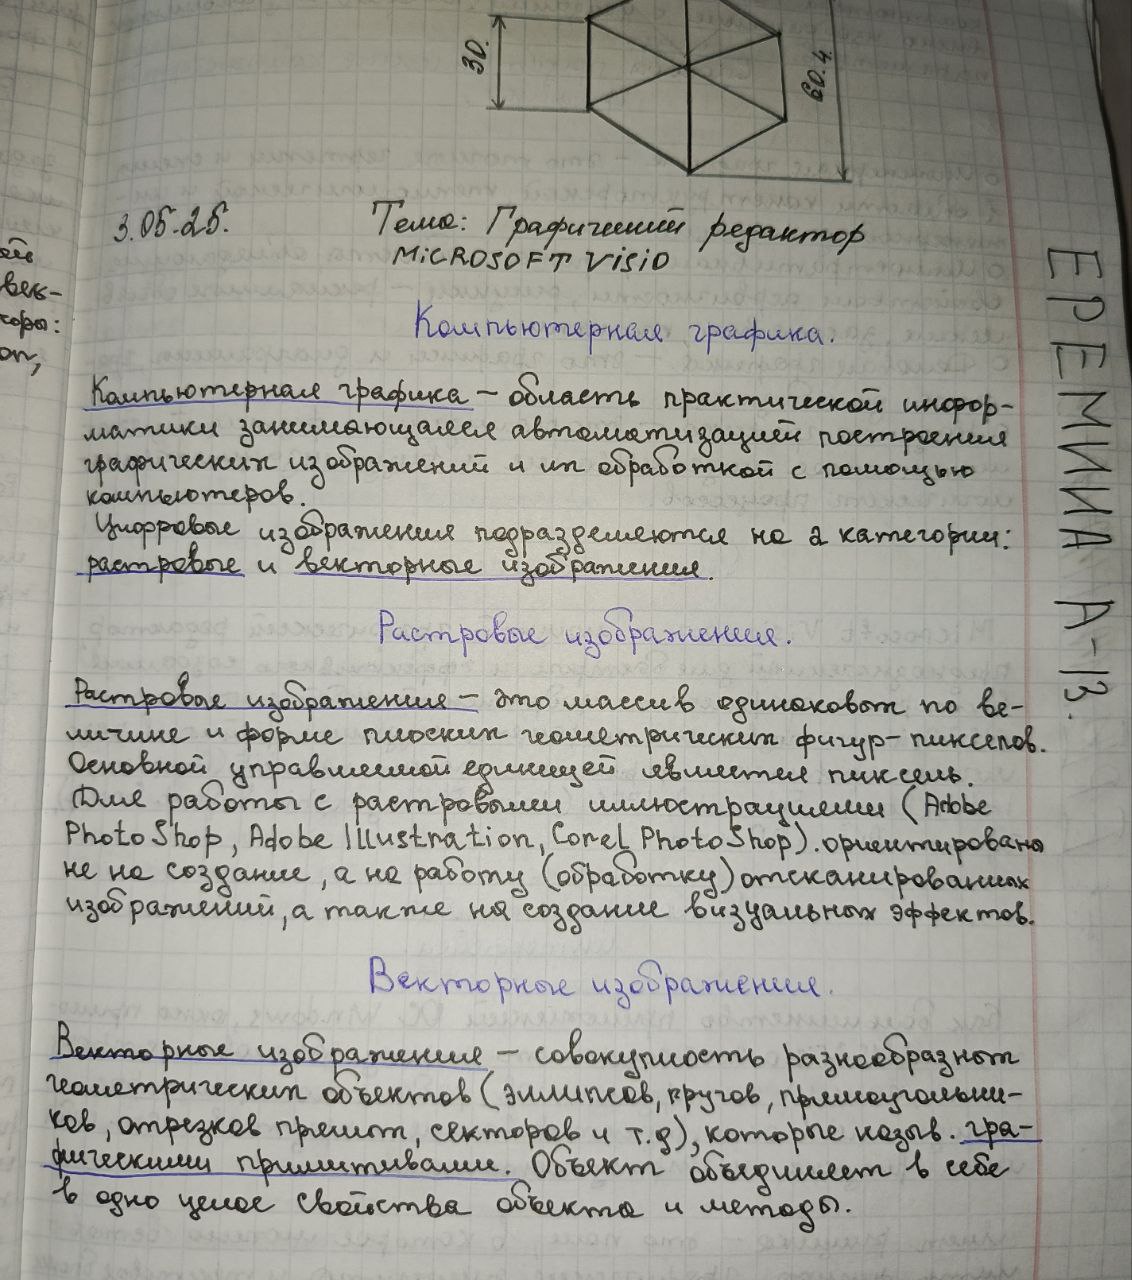 30.
60.4
3.05.25.
Тема: Графический редактор
MiCROSOFT VISIO
Компьютерная графика.
Компьютерная графика – область практической инфор-
матики занимающаяся автоматизацией построения
графических изображений и их обработкой с помощью
компьютеров.
Цифровые изображения подразделяются на 2 категории:
растровые и векторные изображения.
Растровые изображения.
Растровые изображения – это массив одинаковых по ве-
личине и форме плоских геометрических фигур-пикселов.
Основной управляемой единицей является пиксель.
Для работы с растровыми иллюстрациями (Adobe
PhotoShop, Adobe Illustration, Corel PhotoShop). ориентировано
не на создание, а на работу (обработку) отсканированных
изображений, а также на создание визуальных эффектов.
Векторные изображения.
Векторные изображения – совокупность разнообразных
геометрических объектов (эллипсов, кругов, прямоугольни-
ков, отрезков прямых, секторов и т.д), которые назыв. гра-
фическими примитивами. Объект объединяет в себе
в одно целое свойства объекта и методы.
ЕРЕМИИА А-13.
век-
торы:
on,